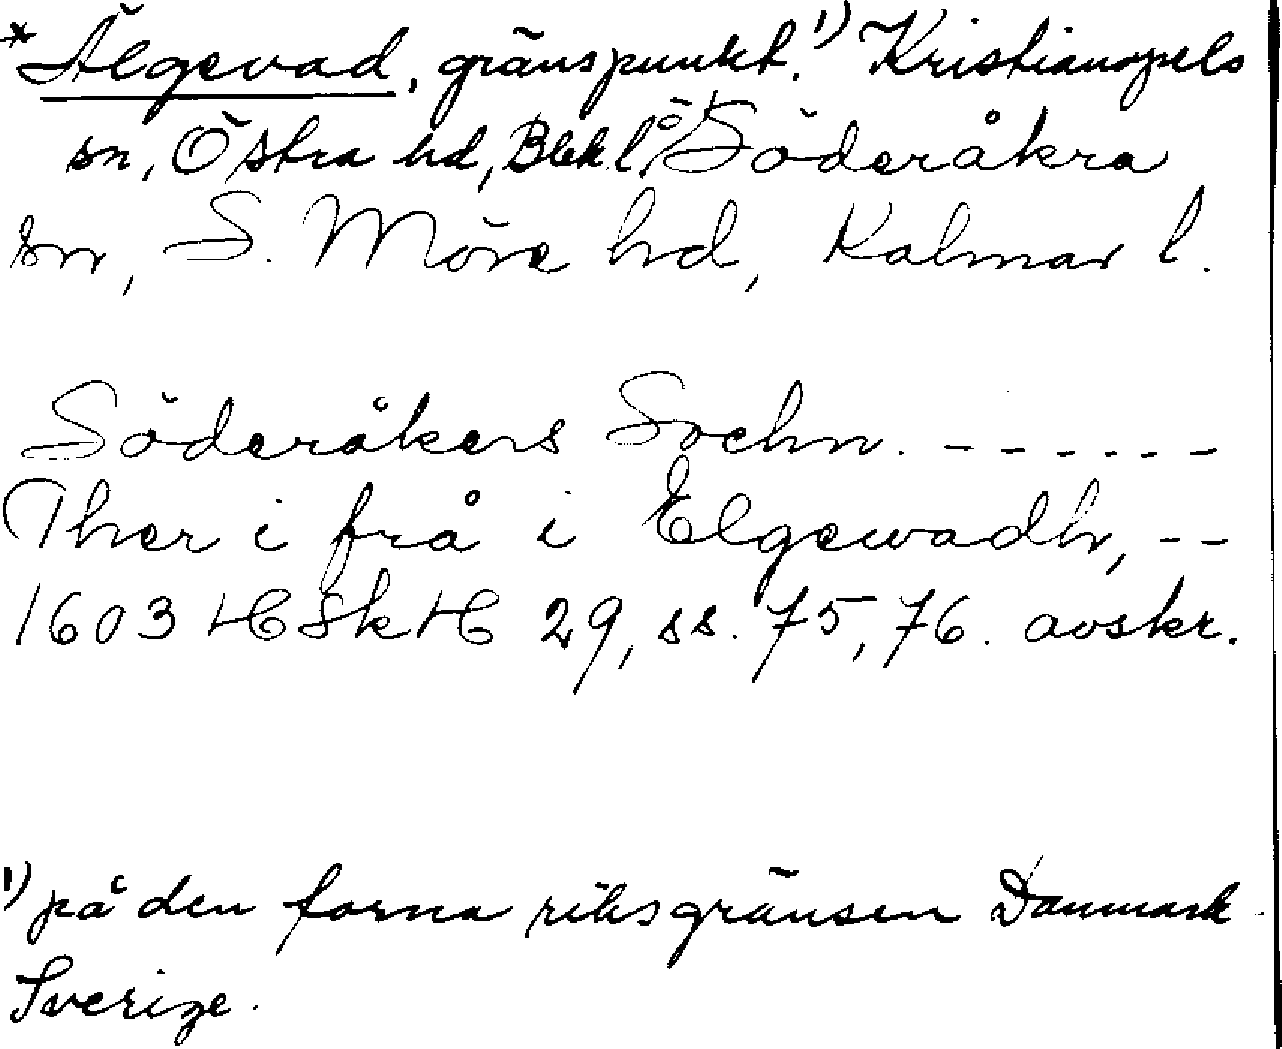 *Älgevad, gränspunkt.¹⁾ Kristianopels
sn, Östra hd, Blek. l. o. Söderåkra
sn, S. Möre hd, Kalmar l.
Söderåkers Sochn. - - - - - -
Ther i frå i Elgewadh, - -
1603 HSkH 29, ss. 75, 76. avskr.
¹⁾ på den forna riksgränsen Danmark -
Sverige.